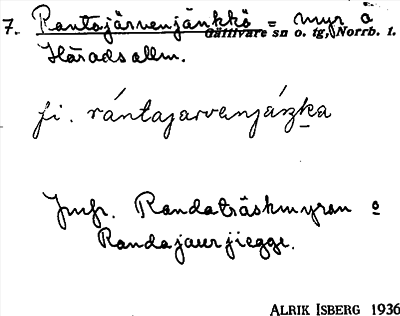 7. Rantajärvenjänkkä = myr å
Gällivare sn o. tg, Norrb. l.
Häradsallm.
fi. rántajarvenjáŋka
Jmfr. Randaträskmyran o
Randajaurjiegge.
ALRIK ISBERG 1936